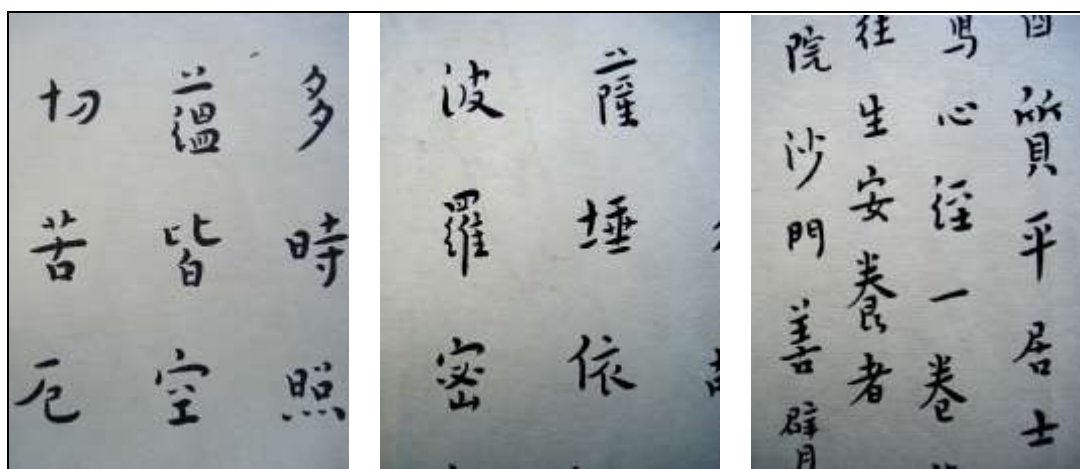 多時照
蘊皆空
切苦厄
薩埵依
波羅密
質平居士
写心經一卷
往生安養者
院沙門善臂